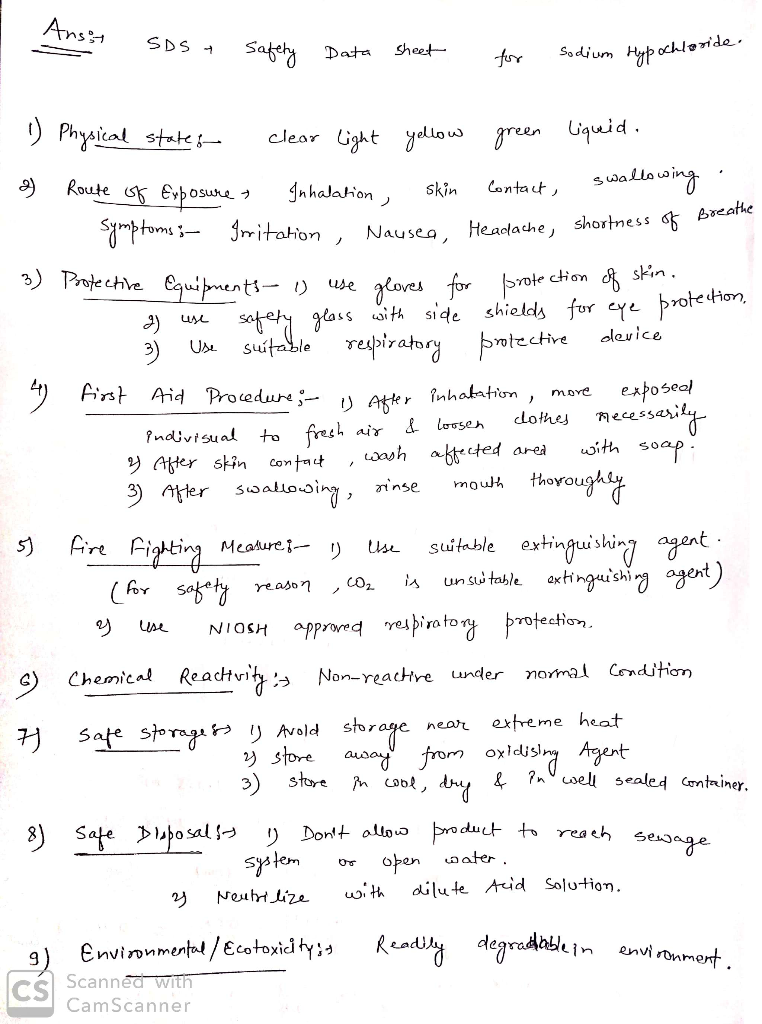 Ans:→ SDS → Safety Data Sheet for Sodium Hypochloride.
1) Physical state:— clear light yellow green liquid.
2) Route of Exposure → Inhalation, skin Contact, swallowing.
Symptoms:— Irritation, Nausea, Headache, shortness of Breathe
3) Protective Equipments— 1) use gloves for protection of skin.
2) use safety glass with side shields for eye protection.
3) Use suitable respiratory protective device
4) First Aid Procedure:— 1) After inhalation, move exposed
indivisual to fresh air & loosen clothes necessarily
2) After skin contact, wash affected area with soap.
3) After swallowing, rinse mouth thoroughly
5) Fire Fighting Measure:— 1) Use suitable extinguishing agent.
(For safety reason, CO2 is unsuitable extinguishing agent)
2) use NIOSH approved respiratory protection.
6) Chemical Reactivity:→ Non-reactive under normal Condition
7) Safe storage:→ 1) Avoid storage near extreme heat
2) store away from oxidising Agent
3) store in cool, dry & in well sealed container.
8) Safe Disposal:→ 1) Don't allow product to reach sewage
system or open water.
2) Neutrilize with dilute Acid Solution.
9) Environmental/Ecotoxicity:→ Readily degradable in environment.
CS Scanned with
CamScanner